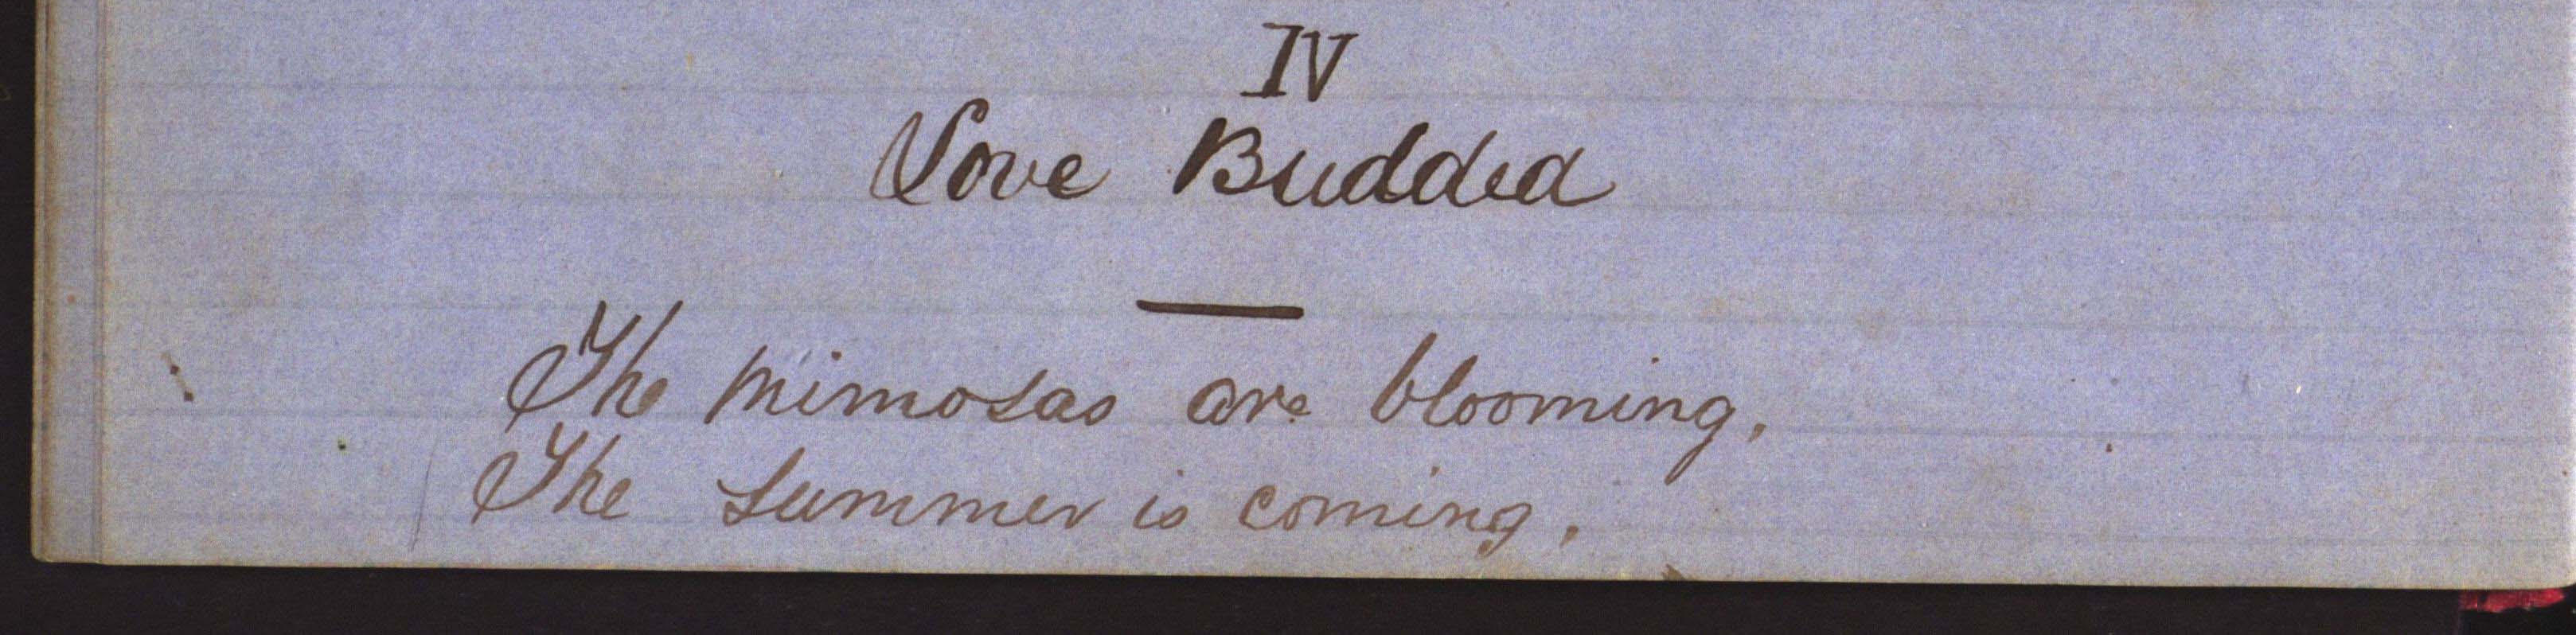 IV
Love Budded
The mimosas are blooming,
The summer is coming,